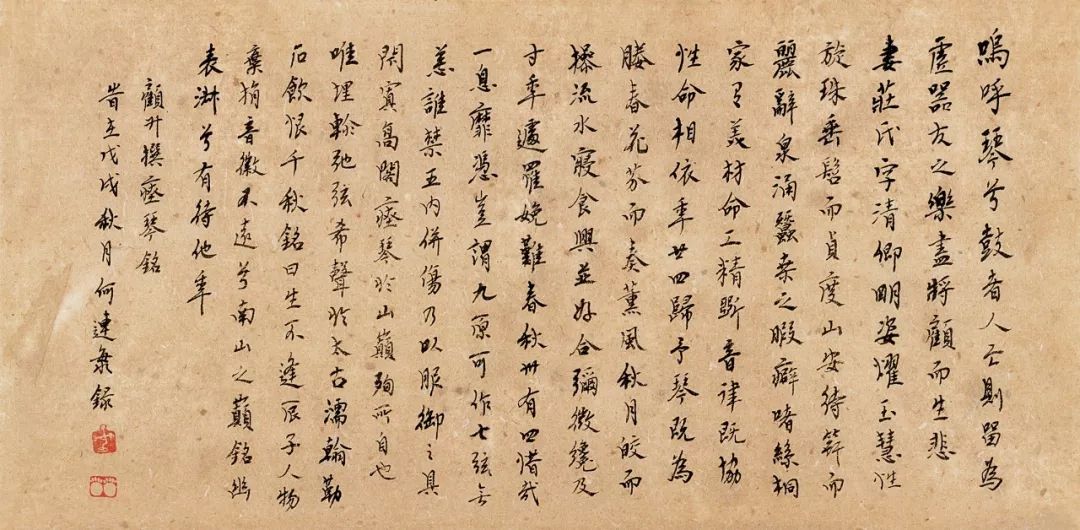 嗚呼琴兮鼓者人亡則留為
虛器友之樂盡將顧而生悲
妻莊氏字清卿明姿耀玉慧性
旋珠垂髫而貞度山安待笄而
麗辭泉涌蠶桒之暇癖嗜絲桐
家有美材命工精斲音律既協
性命相依年廿四歸予琴既為
媵春花芬而奏薰風秋月皎而
操流水寢食與並好合彌徵及
寸年遽罹娩難春秋卅有四惜哉
一息靡憑豈謂九原可作七弦無
恙誰禁五內併傷乃以服御之具
閟寘高閣瘞琴於山巔殉所自也
唯埋軫弛弦希聲於太古濡翰勒
石飲恨千秋銘曰生不逢辰人物
棄捐音徽不遠兮南山之巔銘幽
表兮有待他年
顧升撰瘞琴銘
旹在戊戌秋月何連錄